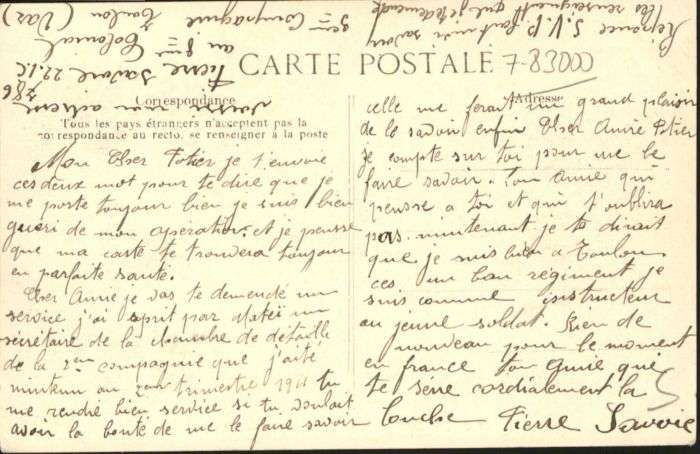 CARTE POSTALE
7-83000
Correspondance
Adresse
Tous les pays étrangers n'acceptent pas la
correspondance au recto, se renseigner à la poste
Mon Cher Potier je t'envoie
ces deux mot pour te dire que je
me porte toujour bien je suis bien
gueri de mon operation. et je pensse
que ma carte te trouvera toujour
en parfaite santé.
Cher Amie je vas te demendé un
service j'ai aprit par
secrétaire de la chambre de détaille
de la 2em compagnie que j'aité
mintenu au trimestre 1911 tu
me rendré bien service si tu voulait
avoir la bonté de me le faire savoir
celle me ferait un grand plaisir
de le savoir enfin Cher Amie Potier
je compte sur toi pour me le
faire savoir. Ton Amie qui
pensse a toi et qui t'oublira
pas. mintenant je te dirait
que je suis bien a Toulon
ces un bon régiment je
suis comme instructeur
au jeune soldat. Rien de
nouveau pour le moment
en france ton Amie qui
te sére cordialement la
louche Pierre Savoie
Réponse S.V.P. faut me savoir
les renseignent que je te demende
voici mon adresse
Pierre Savoie 22.I.C
au 8eme Colonial
5eme Compagnie
Toulon (Var)